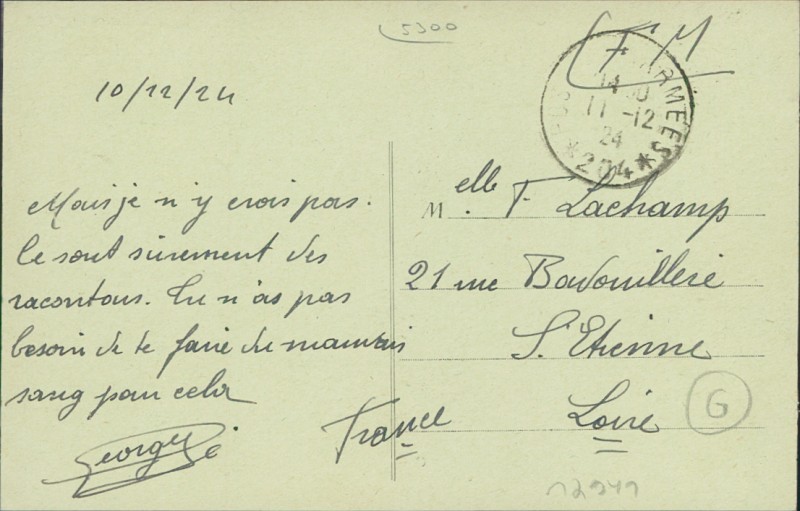 5300
F M
10/12/24
POSTE AUX ARMEES
14 30
11 -12
24
* 204 *
Mais je n'y crois pas.
Ce sont sûrement des
racontars. Tu n'as pas
besoin de te faire du mauvais
sang pour cela
Georges
Melle F Lachamp
21 rue
St Etienne
Loire
France
G
12949